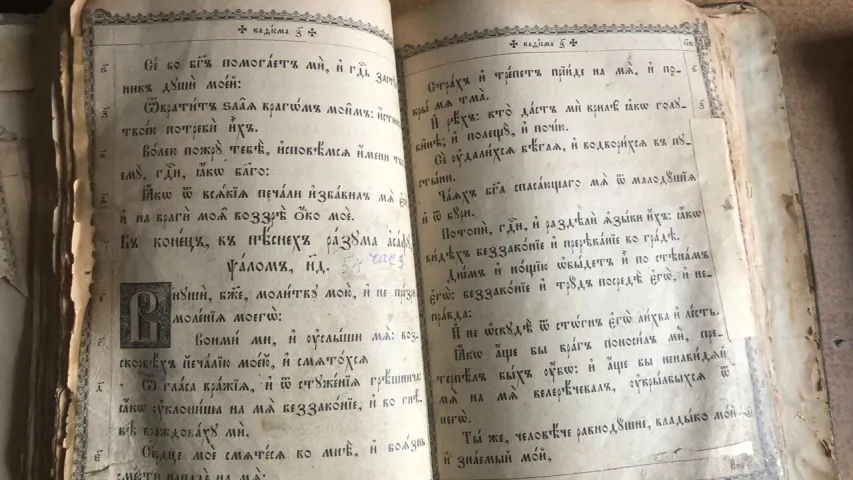 ✠ каѳі́сма з҃ ✠
Се́ бо бг҃ъ помога́етъ мѝ, и҆ гдⷭ҇ь засту́
пникъ дꙋшѝ мое́й:
Ѿврати́тъ ѕла̑ѧ врагѡ́мъ мои̑мъ: и҆́стин
твое́ю потребѝ и҆̀хъ.
Во́лею пожрꙋ̀ тебѣ̀, и҆сповѣ́мсѧ и҆́мени тв
емꙋ̀, гдⷭ҇и, ꙗ҆́кѡ бл҃го:
Ꙗ҆́кѡ ѿ всѧ́кїѧ печа́ли и҆зба́вилъ мѧ̀
и҆ на врагѝ моѧ̑ воззрѣ̀ ѻ҆́ко моѐ.
Въ коне́цъ, въ пѣ́снехъ ра́зꙋма а҆са́фꙋ,
ѱало́мъ, н҃д.
Внꙋшѝ, бж҃е, моли́твꙋ мою̀, и҆ не пре́з
моле́нїѧ моегѡ̀:
Вонмѝ ми, и҆ ᲂу҆слы́ши мѧ̀: воз
скорбѣ́хъ печа́лїю мое́ю, и҆ смѧто́хсѧ
Ѿ гла́са вра́жїѧ, и҆ ѿ стꙋже́нїѧ грѣ́шнича:
ꙗ҆́кѡ ᲂу҆клони́ша на мѧ̀ беззако́нїе, и҆ во гнѣ́
вѣ враждова́хꙋ мѝ.
Се́рдце моѐ смѧте́сѧ во мнѣ̀, и҆ боѧ́знь
сме́рти нападѐ на мѧ̀:
✠ каѳі́сма з҃ ✠
Стра́хъ и҆ тре́петъ прїи́де на мѧ̀, и҆ по-
кры́ мѧ тма̀.
И҆ рѣ́хъ: кто̀ да́стъ мѝ крилѣ̀ ꙗ҆́кѡ голꙋ-
би́нѣ; и҆ полещꙋ̀, и҆ почі́ю.
Сѐ ᲂу҆дали́хсѧ бѣ́гаѧ, и҆ водвори́хсѧ въ пꙋ-
сты́ни.
Ча́ѧхъ бг҃а спаса́ющаго мѧ̀ ѿ малодꙋ́шїѧ
и҆ ѿ бꙋ́ри.
Потопѝ, гдⷭ҇и, и҆ раздѣлѝ ѧ҆зы́ки и҆́хъ: ꙗ҆́кѡ
ви́дѣхъ беззако́нїе и҆ пререка́нїе во гра́дѣ.
Дне́мъ и҆ но́щїю ѡ҆бы́детъ и҆̀ по стѣна́мъ
є҆гѡ̀: беззако́нїе и҆ трꙋ́дъ посредѣ̀ є҆гѡ̀, и҆ не-
пра́вда:
И҆ не ѡ҆скꙋдѣ̀ ѿ сто́гнъ є҆гѡ̀ ли́хва и҆ ле́сть.
Ꙗ҆́кѡ а҆́ще бы вра́гъ поноси́лъ мѝ, пре-
терпѣ́лъ бы́хъ ᲂу҆́бѡ: и҆ а҆́ще бы ненави́дѧй
мѧ̀ на мѧ̀ велерѣ́чевалъ, ᲂу҆кры́лбыхсѧ ѿ
негѡ̀.
Ты́ же, человѣ́че равнодꙋ́шне, влады́ко мо́й
и҆ зна́емый мо́й,